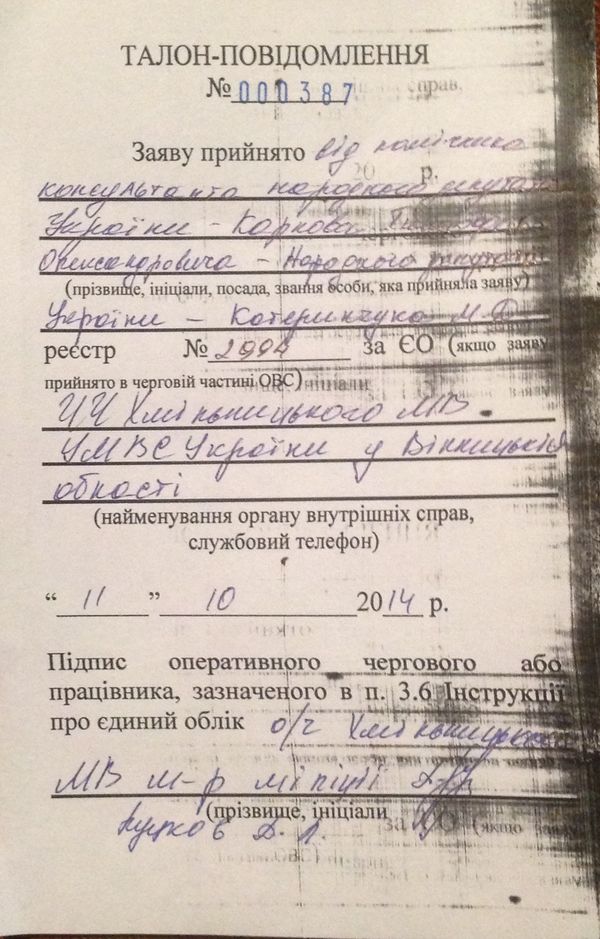 ТАЛОН-ПОВІДОМЛЕННЯ
№ 000387
справ.
Заяву прийнято від помічника
р.
консультанта народного депутата
України - Карпова
Олександровича - Народного депутата
(прізвище, ініціали, посада, звання особи, яка прийняла заяву)
України - Катеринчука М.Д.
реєстр № 2994 за ЄО (якщо заяву
прийнято в черговій частині ОВС)
ЧЧ Хмільницького МВ
УМВС України у Вінницькій
області
(найменування органу внутрішніх справ,
службовий телефон)
“ 11 ” 10 2014 р.
Підпис оперативного чергового або
працівника, зазначеного в п. 3.6 Інструкції
про єдиний облік о/ч Хмільницького
МВ м-р міліції
(прізвище, ініціали
за ЄО (якщо заяву
Д.